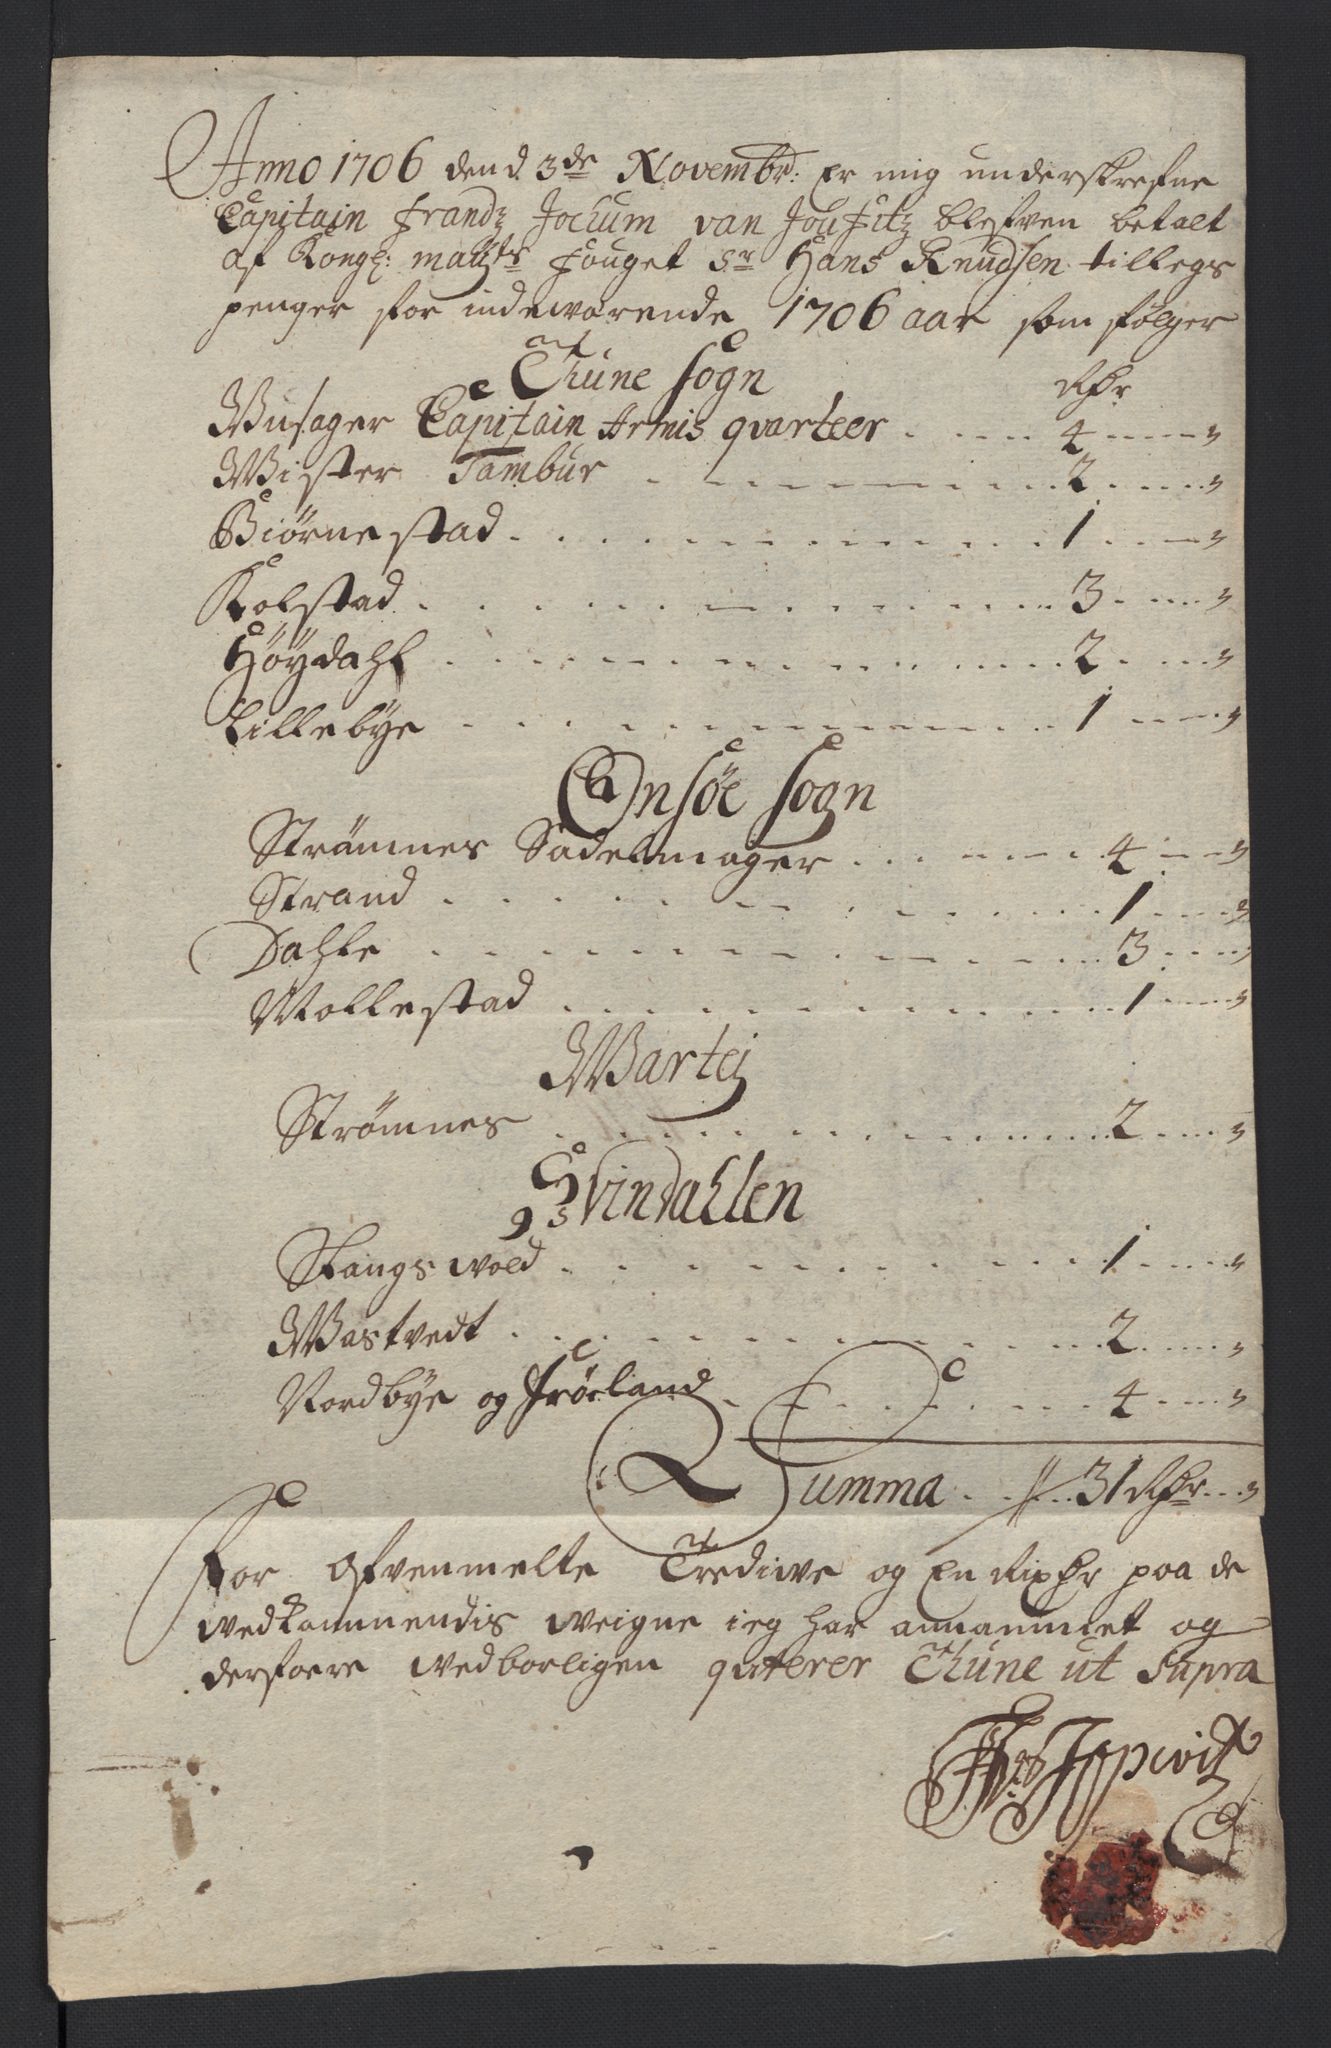 Anno 1706 dend 3de Novembr: Er mig underskrefne
Capitain Frandz Jochum van blefven betalt
af Kongl: mayts Fouget Sr Hans Knudsen tillegs
penger for indewærende 1706 aar som følger
Thune Sogn
Rdr
Wusager Capitain Armis qvarteer 4 - „
Wister Tambur 2 - „
Biørnestad 1 - „
Kolstad 3 - „
Höÿdahl 2 - „
Lillebÿe 1 - „
Onsöe Sogn
Strömnes Sadelmager 4 - „
Strand 1 - „
Dahle 3 - „
Mollestad 1 - „
Wartej
Strømnes 2 - „
Svindahlen
Stangswold 1 - „
Wastvedt 2 - „
Nordbÿe og Fröeland 4 - „
Summa 31 Rdr - „
For Ofvenmelte Trediwe og En Rixdr paa de
wedkommendis weigne ieg har annammet og
derfoere wedborligen qviterer Thune ut Supra